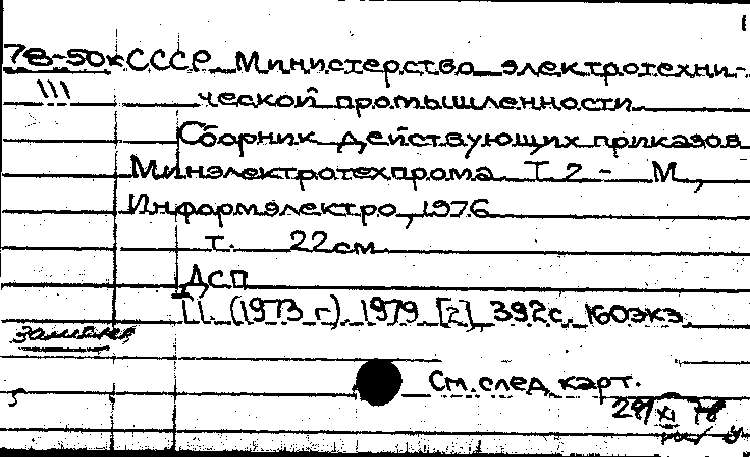 78-50к СССР. Министерство электротехни-
III ческой промышленности
Сборник действующих приказов
Минэлектротехпрома Т. 2 - М.,
Информэлектро, 1976
т. 22 см.
ДСП
Т.1. (1973 г). 1979 [г] 392с. 160экз.
См. след. карт.
29/XI 78